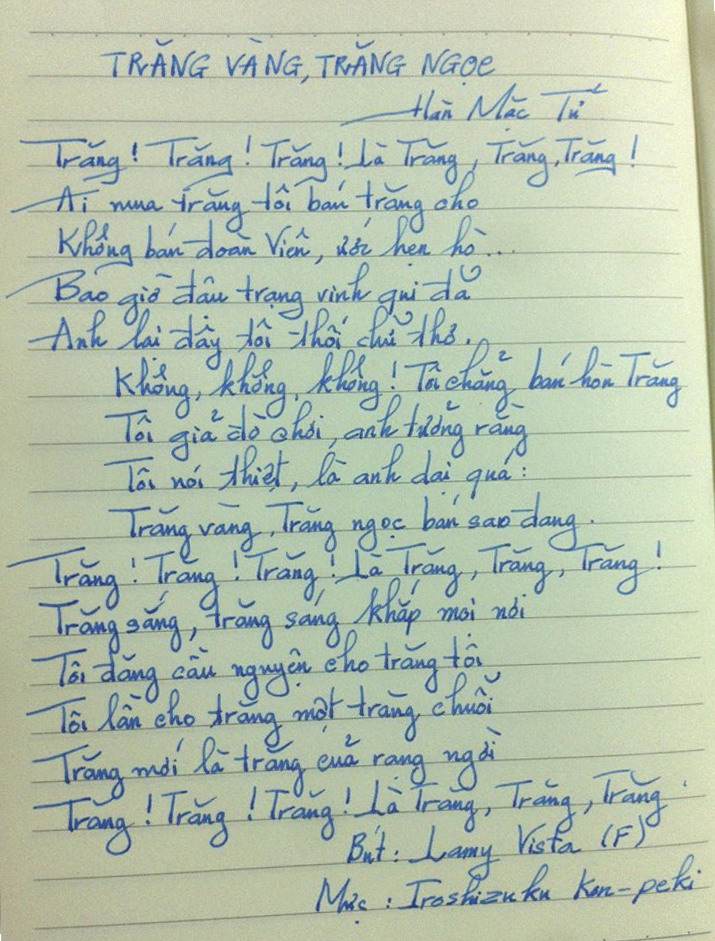 TRĂNG VÀNG, TRĂNG NGỌC
Hàn Mặc Tử
Trăng! Trăng! Trăng! Là Trăng, Trăng, Trăng!
Ai mua trăng tôi bán trăng cho
Không bán đoàn viên, ước hẹn hò...
Bao giờ đậu trạng vinh qui đã
Anh lại đây tôi thối chữ thơ.
Không, không, không! Tôi chẳng bán hòn Trăng
Tôi giả đò chơi, anh tưởng rằng
Tôi nói thiệt, là anh dại quá:
Trăng vàng, Trăng ngọc bán sao đang.
Trăng! Trăng! Trăng! Là Trăng, Trăng, Trăng!
Trăng sáng, trăng sáng khắp mọi nơi
Tôi đang cầu nguyện cho trăng tôi
Tôi lần cho trăng một tràng chuỗi
Trăng mới là trăng của rạng ngời
Trăng! Trăng! Trăng! Là Trăng, Trăng, Trăng.
Bút: Lamy Vista (F)
Mực: Iroshizuku Kon-peki